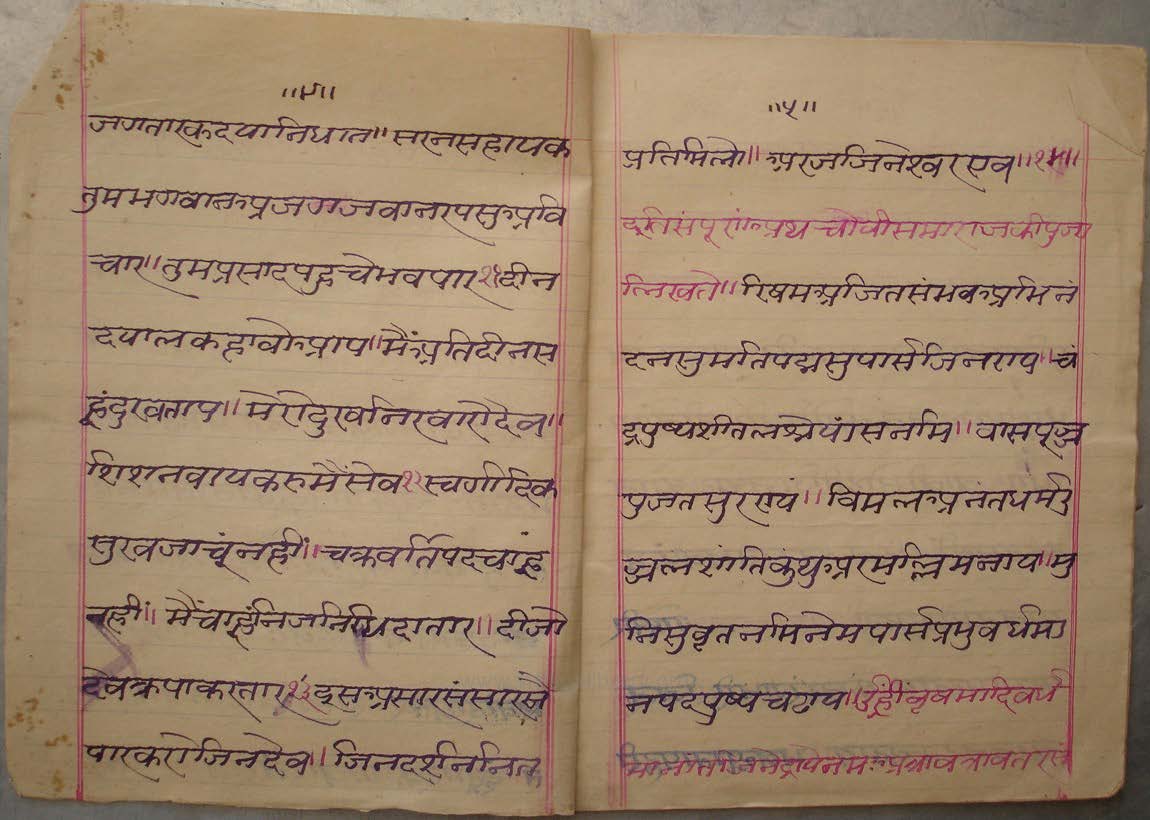 ॥४॥
जगतारक दयानिधान॥ सरन सहायक
तुम भगवान अ्रज गज वानर पसु अ्रवि
चार॥ तुम प्रसाद पहुचे भव पार ११ दीन
दयाल कहावो अ्राप॥ मैं अ्रति दीन स
हूं दुख ताप॥ मेरो दुख निरवारो देव॥
शिशनवाय करु मैं सेव १२ स्वर्गादिक
सुख जाचूं नहीं॥ चक्रवर्ति पद चाहूं
नहीं॥ मैं चाहूं निज निधि दातार॥ दीजो
देव क्रपा करतार १३ इस अ्रसार संसार सै
पार करो जिनदेव॥ जिन दर्शन नित
॥५॥
प्रति मिलो॥ अ्ररज जिनेश्वर एव॥१४॥
इति संपूर्ण अ्रथ चौवीस माराज की पुजा
लिखते॥ रिषभ अ्रजित संभव अ्रभि नं
दन सुमति पद्म सुपार्स जिनराय॥ चं
द्र पुष्प शीतल श्रेयांस नमि॥ वास पूज्य
पुजत सुर राय॥ विमल अ्रनंत धर्म उ
ज्जल शांति कुंथु अ्रर मल्लि मनाय॥ मु
निसुवृत नमि नेम पार्स प्रभु वर्धमा
न पद पुष्प चढाय॥ उंह्रीं वृषभादि वर्ध